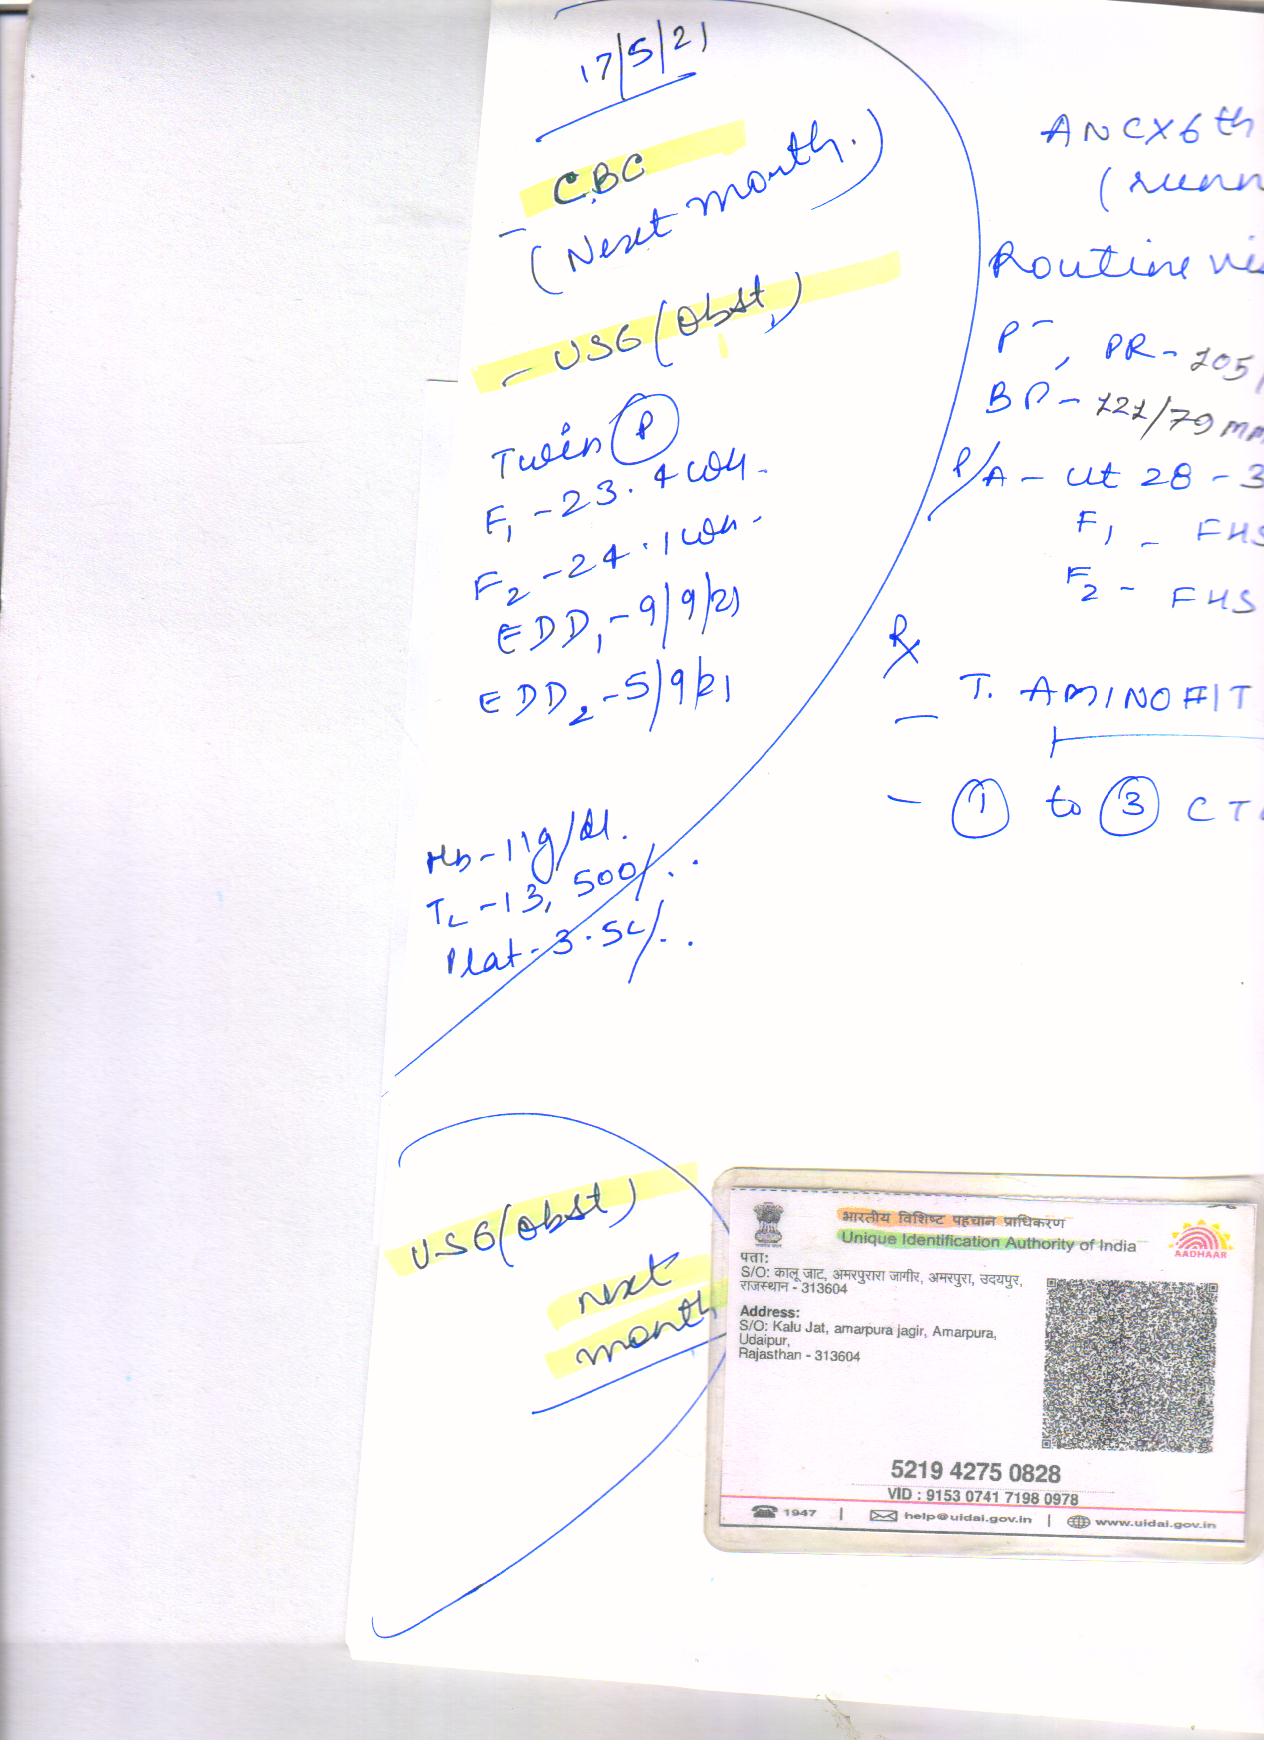 17/5/21
CBC
(Next month.)
- USG (Obst)
Twin (P)
F1 - 23.4 wk.
F2 - 24.1 wk.
EDD1 - 9/9/21
EDD2 - 5/9/21
Hb - 11g/dl.
TL - 13,500/..
Plat - 3.5L/..
USG (Obst)
next
month
ANC X 6th
(runn
Routine vis
P-, PR - 105/
BP - 121/79 mm
P/A - Ut 28 - 3
F1 - FHS
F2 - FHS
Rx
T. AMINOFIT
- 1 to 3 CT
भारतीय विशिष्ट पहचान प्राधिकरण
Unique Identification Authority of India
AADHAAR
पता:
S/O: कालू जाट, अमरपुरारा जागीर, अमरपुरा, उदयपुर,
राजस्थान - 313604
Address:
S/O: Kalu Jat, amarpura jagir, Amarpura,
Udaipur,
Rajasthan - 313604
5219 4275 0828
VID : 9153 0741 7198 0978
1947 | help@uidai.gov.in | www.uidai.gov.in